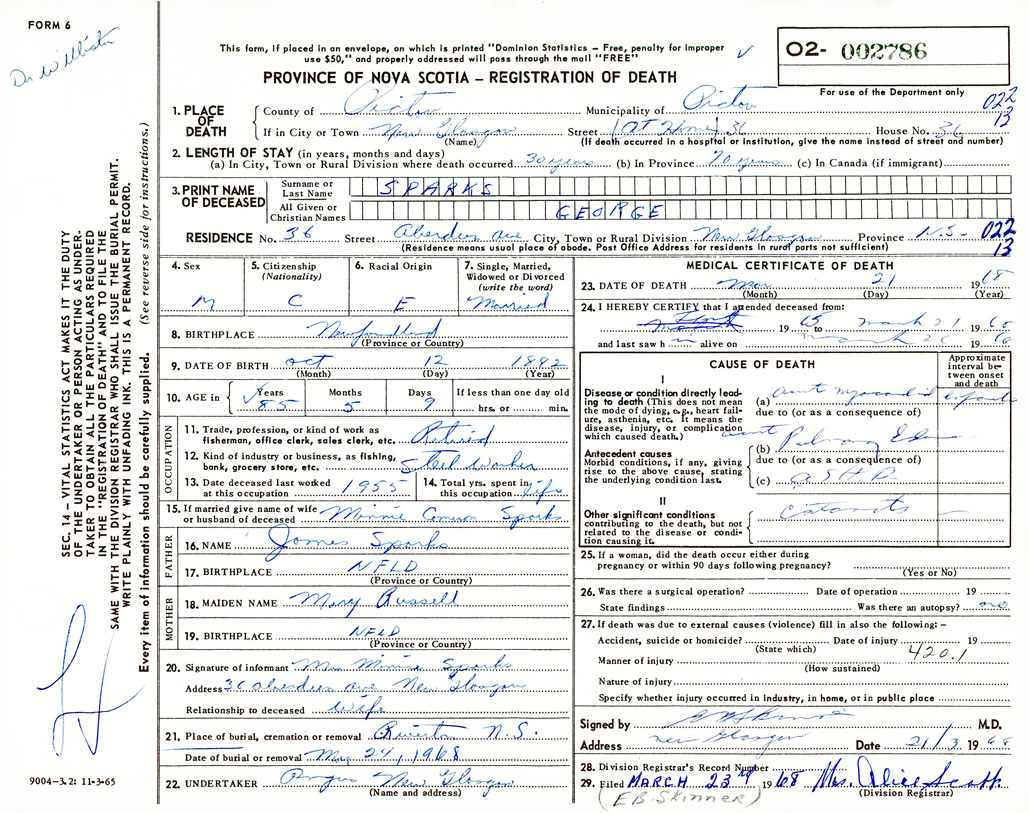 FORM 6
This form, if placed in an envelope, on which is printed "Dominion Statistics – Free, penalty for improper
use $50," and properly addressed will pass through the mail "FREE"
PROVINCE OF NOVA SCOTIA – REGISTRATION OF DEATH
O2- 002786
For use of the Department only
022
13
1. PLACE OF DEATH
County of Pictou Municipality of Pictou
If in City or Town New Glasgow Street (At Home) 36 House No. 36
(Name) (If death occurred in a hospital or institution, give the name instead of street and number)
2. LENGTH OF STAY (in years, months and days)
(a) In City, Town or Rural Division where death occurred 30 years (b) In Province 70 years (c) In Canada (if immigrant)
3. PRINT NAME OF DECEASED
Surname or Last Name SPARKS
All Given or Christian Names GEORGE
RESIDENCE No. 36 Street Aberdeen Ave City, Town or Rural Division New Glasgow Province N.S- 022
(Residence means usual place of abode. Post Office Address for residents in rural parts not sufficient) 13
4. Sex M
5. Citizenship (Nationality) C
6. Racial Origin E
7. Single, Married, Widowed or Divorced (write the word) Married
8. BIRTHPLACE Newfoundland
(Province or Country)
9. DATE OF BIRTH Oct 12 1882
(Month) (Day) (Year)
10. AGE in Years 85 Months 5 Days 9 If less than one day old hrs. or min.
OCCUPATION
11. Trade, profession, or kind of work as fisherman, office clerk, sales clerk, etc. Retired
12. Kind of industry or business, as fishing, bank, grocery store, etc. Steel Worker
13. Date deceased last worked at this occupation 1955
14. Total yrs. spent in this occupation life
15. If married give name of wife or husband of deceased Minnie Sparks
FATHER
16. NAME James Sparks
17. BIRTHPLACE NFLD
(Province or Country)
MOTHER
18. MAIDEN NAME Mary Russell
19. BIRTHPLACE NFLD
(Province or Country)
20. Signature of informant Mrs Minnie Sparks
Address 36 Aberdeen Ave New Glasgow
Relationship to deceased Wife
21. Place of burial, cremation or removal Riverton N.S.
Date of burial or removal Mar 24, 1968
22. UNDERTAKER Angus New Glasgow
(Name and address)
MEDICAL CERTIFICATE OF DEATH
23. DATE OF DEATH Mar 21 1968
(Month) (Day) (Year)
24. I HEREBY CERTIFY that I attended deceased from:
19 65 to March 21 19
and last saw h m alive on March 19
CAUSE OF DEATH
Approximate interval between onset and death
I
Disease or condition directly leading to death (This does not mean the mode of dying, e.g., heart failure, asthenia, etc. It means the disease, injury, or complication which caused death.)
(a) acute myocardial infarct
due to (or as a consequence of)
Antecedent causes
Morbid conditions, if any, giving rise to the above cause, stating the underlying condition last.
(b) acute Pulmonary Edema
due to (or as a consequence of)
(c) ASHD.
II
Other significant conditions contributing to the death, but not related to the disease or condition causing it.
Cataracts
25. If a woman, did the death occur either during pregnancy or within 90 days following pregnancy?
(Yes or No)
26. Was there a surgical operation? Date of operation 19
State findings Was there an autopsy? no
27. If death was due to external causes (violence) fill in also the following: –
Accident, suicide or homicide? Date of injury 19
(State which) 420.1
Manner of injury
(How sustained)
Nature of injury
Specify whether injury occurred in Industry, in home, or in public place
Signed by EB Skinner M.D.
Address New Glasgow Date 21/3 1968
28. Division Registrar's Record Number
29. Filed MARCH 23rd 1968 Mrs. Alice Scott
(EB. SKINNER) (Division Registrar)
SEC. 14 – VITAL STATISTICS ACT MAKES IT THE DUTY
OF THE UNDERTAKER OR PERSON ACTING AS UNDER-
TAKER TO OBTAIN ALL THE PARTICULARS REQUIRED
IN THE "REGISTRATION OF DEATH" AND TO FILE THE
SAME WITH THE DIVISION REGISTRAR WHO SHALL ISSUE THE BURIAL PERMIT.
WRITE PLAINLY WITH UNFADING INK. THIS IS A PERMANENT RECORD.
Every item of information should be carefully supplied. (See reverse side for instructions.)
9004-3.2: 11-3-65